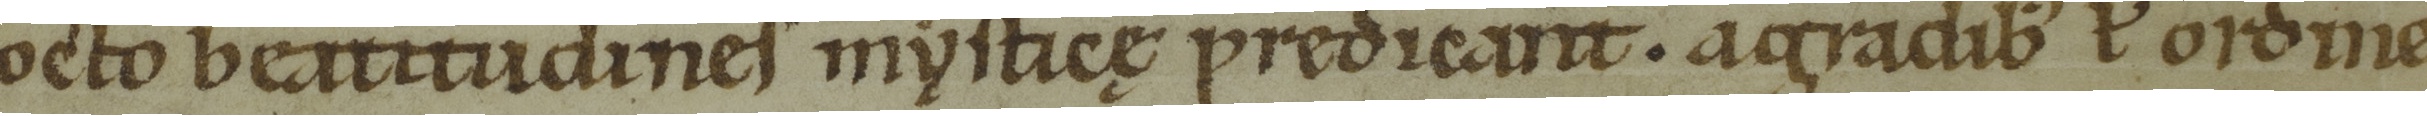 octo beatitudines mẏsticę predicant. agradibꝰ ł ordine